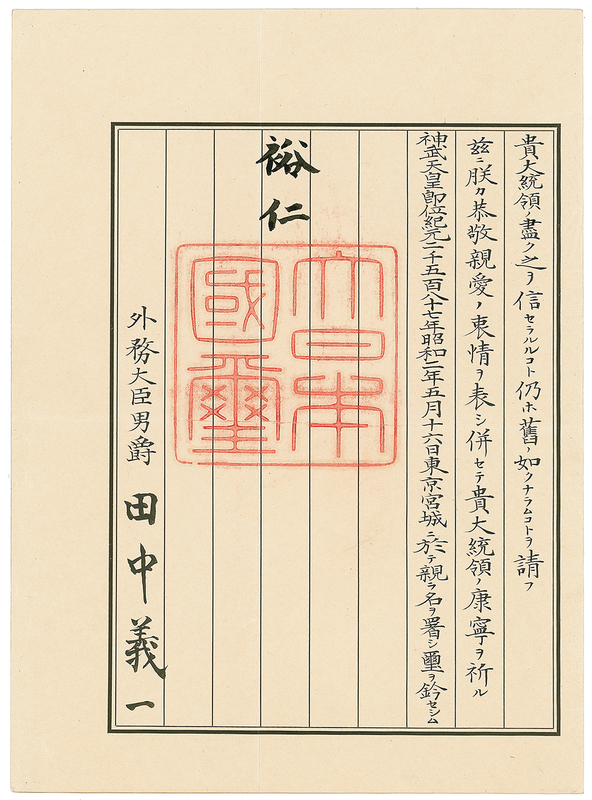 貴大統領ノ盡ク之ヲ信セラルルコト仍ホ舊ノ如クナラムコトヲ請フ
玆ニ朕カ恭敬親愛ノ衷情ヲ表シ併セテ貴大統領ノ康寧ヲ祈ル
神武天皇卽位紀元二千五百八十七年昭和二年五月十六日東京宮城ニ於テ親ラ名ヲ署シ璽ヲ鈐セシム
裕仁
大日本
國璽
外務大臣男爵 田中義一